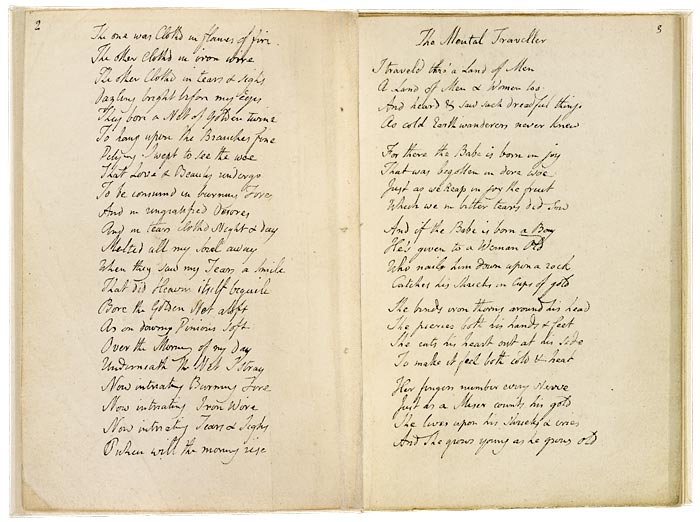 2
The one was Clothd in flames of fire
The other Clothd in iron wire
The other Clothd in tears & sighs
Dazling bright before my Eyes
They bore a Net of Golden twine
To hang upon the Branches fine
Pitying I wept to see the woe
That Love & Beauty undergo
To be consumd in burning Fires
And in ungratified Desires
And in tears clothd Night & day
Melted all my Soul away
When they saw my Tears a Smile
That did Heaven itself beguile
Bore the Golden Net aloft
As on downy Pinions soft
Over the Morning of my Day
Underneath the Net I stray
Now intreating Burning Fire
Now intreating Iron Wire
Now intreating Tears & Sighs
O when will the morning rise
3
The Mental Traveller
I traveld thro' a Land of Men
A Land of Men & Women too
And heard & saw such dreadful things
As cold Earth wanderers never knew
For there the Babe is born in joy
That was begotten in dire woe
Just as we Reap in joy the fruit
Which we in bitter tears did sow
And if the Babe is born a Boy
He's given to a Woman Old
Who nails him down upon a rock
Catches his Shrieks in Cups of gold
She binds iron thorns around his head
She pierces both his hands & feet
She cuts his heart out at his side
To make it feel both cold & heat
Her fingers number every Nerve
Just as a Miser counts his gold
She lives upon his shrieks & cries
And She grows young as he grows old